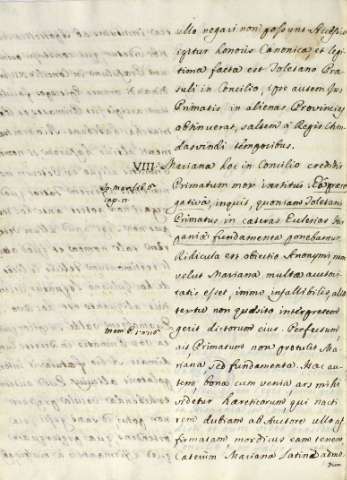 ullo negari non possunt. Auspice
igitur honoris Canonica, et legi
tima facta est Toletano Præ
suli in Concilio, ipse autem Jus
Primatis, in alienas Provincias
obtinuerat, saltem à Regis Chin
dasvindi temporibus.
VIII. Mariana hoc in Concilio credidit
Primatum mox partitus. Ea præro
cap. 11.
gativa, inquit, quoniam Toletani
Primatus in cæteras Ecclesias His
paniæ fundamenta ponebantur.
Ridicula est obiectio Anonymi, non
velut Mariana multæ auctori
tatis esset, immo infallibilis, alio
textu non quæsito interpretem
gerit dictorum eius. Perfecisum,
ais, Primatum non protulit Ma
riana sed fundamenta. Hæc au
tem, bona cum venia, ars mihi
videtur hæreticorum, qui nacti
rem dubiam ab Auctore ullo af
firmatam, mordicus eam tenent.
Cæterum Mariana Latinè admo
dum